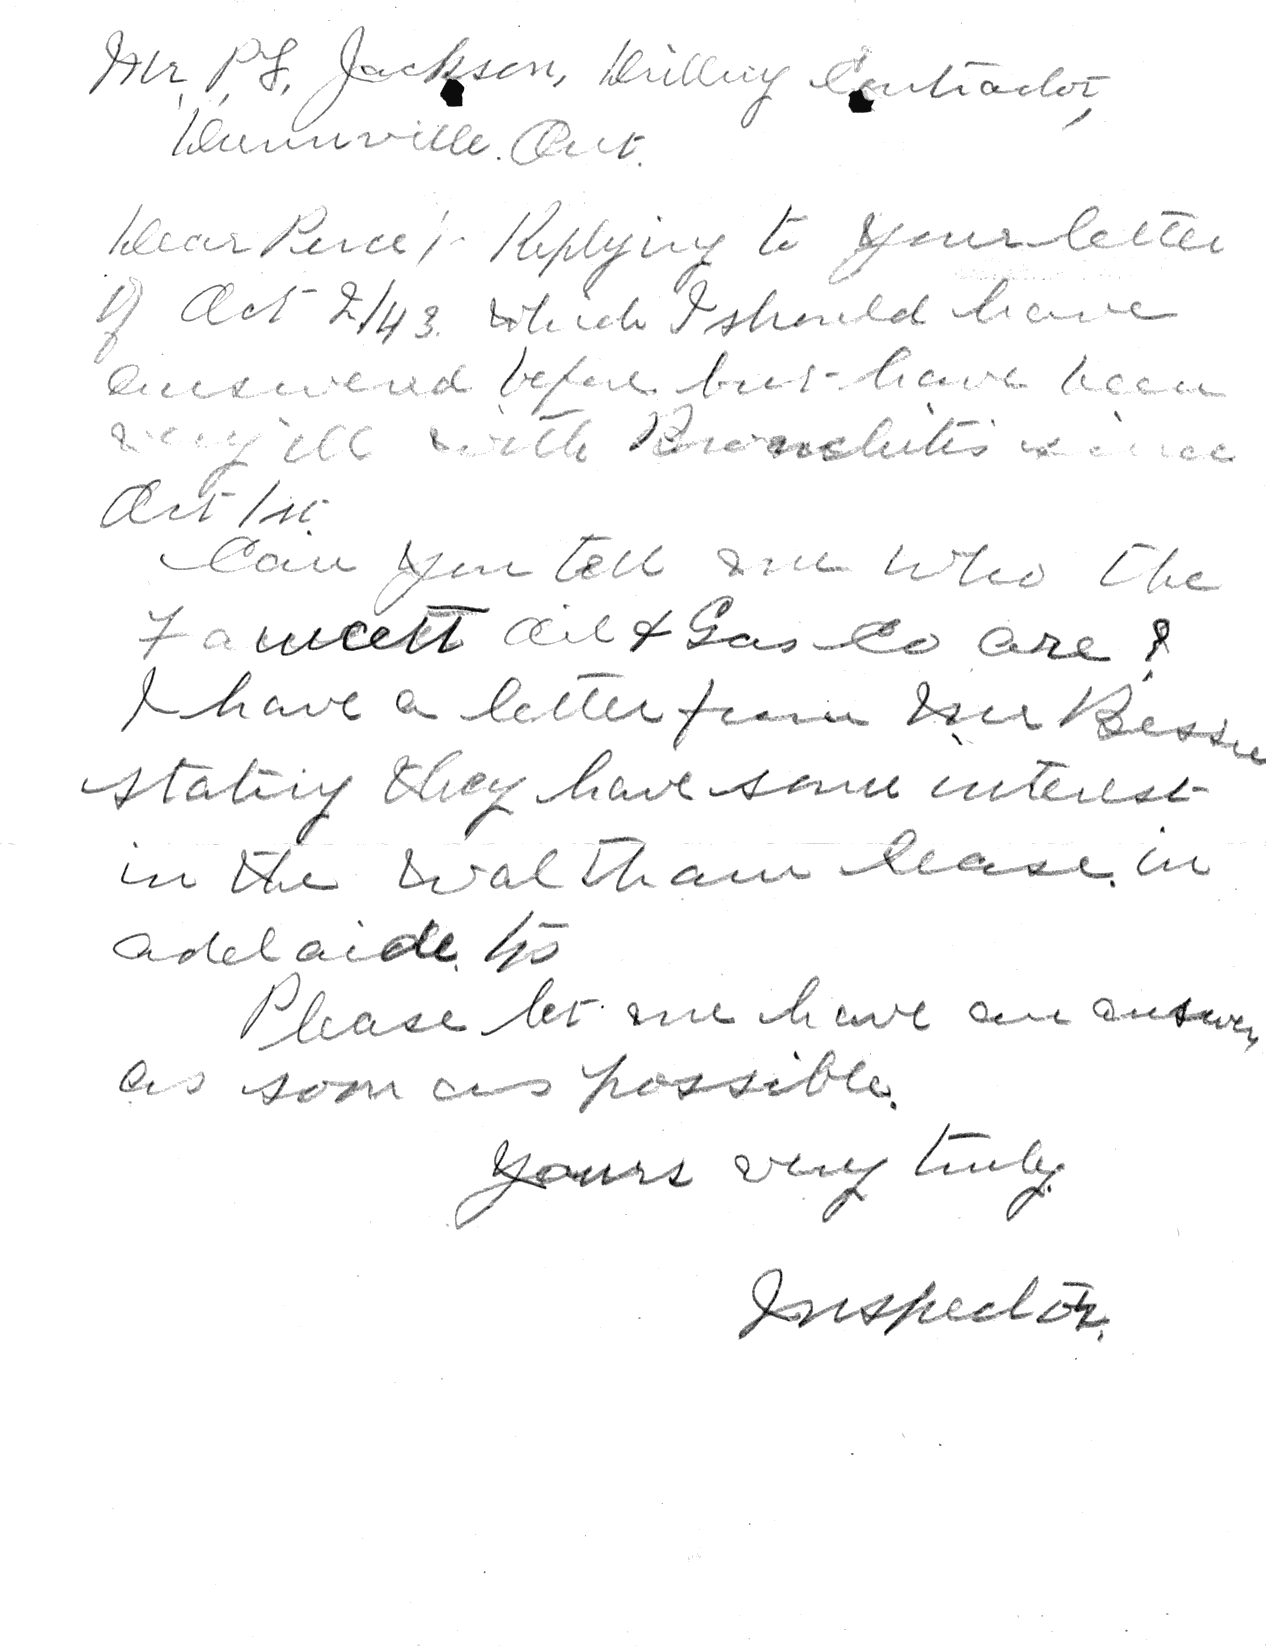 Mr. P. L. Jackson, Drilling Contractor,
Dunnville. Ont.
Dear Perce:- Replying to your letter
of Oct 2/43. which I should have
answered before but have been
very ill with Bronchitis since
Oct 1st.
Can you tell me who the
Fawcett Oil & Gas Co are?
I have a letter from Mr
stating they have some interest
in the Waltham lease. in
adelaide. Tp
Please let me have an answer
as soon as possible.
Yours very truly.
Inspector.